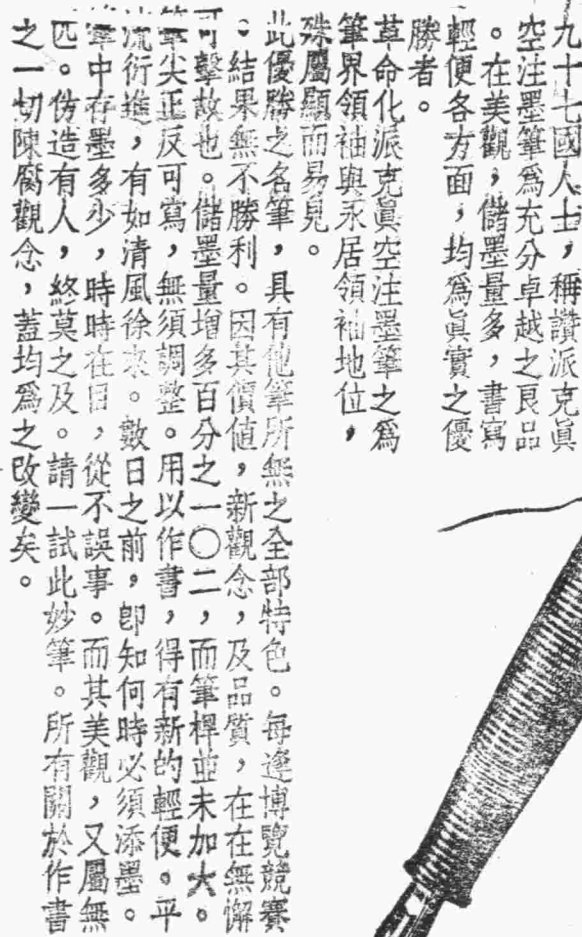 九十七國人士，稱讚派克眞
空注墨筆爲充分卓越之良品
。在美觀，儲墨量多，書寫
輕便各方面，均爲眞實之優
勝者。
革命化派克眞空注墨筆之爲
筆界領袖與永居領袖地位，
殊屬顯而易見。
此優勝之名筆，具有他筆所無之全部特色。每逢博覽競賽
：結果無不勝利。因其價値，新觀念，及品質，在在無懈
可擊故也。儲墨量增多百分之一〇二，而筆桿並未加大。
筆尖正反可寫，無須調整。用以作書，得有新的輕便。平
流衍進，有如清風徐來。數日之前，卽知何時必須添墨。
筆中存墨多少，時時在目，從不誤事。而其美觀，又屬無
匹。仿造有人，終莫之及。請一試此妙筆。所有關於作書
之一切陳腐觀念，蓋均爲之改變矣。